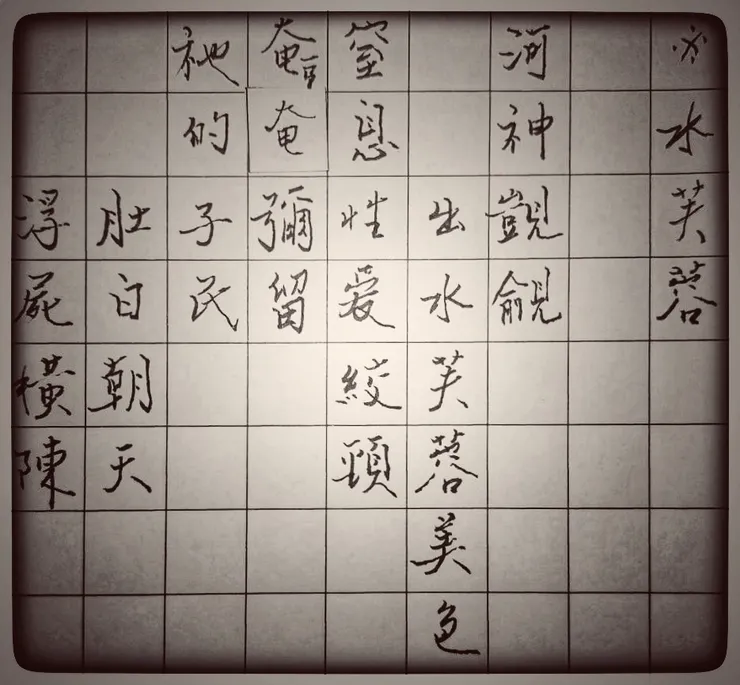 水芙蓉
河神覬覦
出水芙蓉美色
窒息性爱絞頸
奄奄彌留
祂的子民
肚白朝天
浮屍橫陳